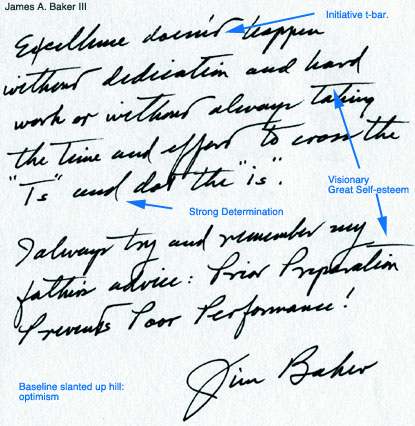 James A. Baker III
Initiative t-bar.
Excellence doesn't happen
without dedication and hard
work or without always taking
the time and effort to cross the
"Ts" and dot the "is".
Visionary
Great Self-esteem
Strong Determination
I always try and remember my
father's advice: Prior Preparation
Prevents Poor Performance!
Jim Baker
Baseline slanted up hill:
optimism